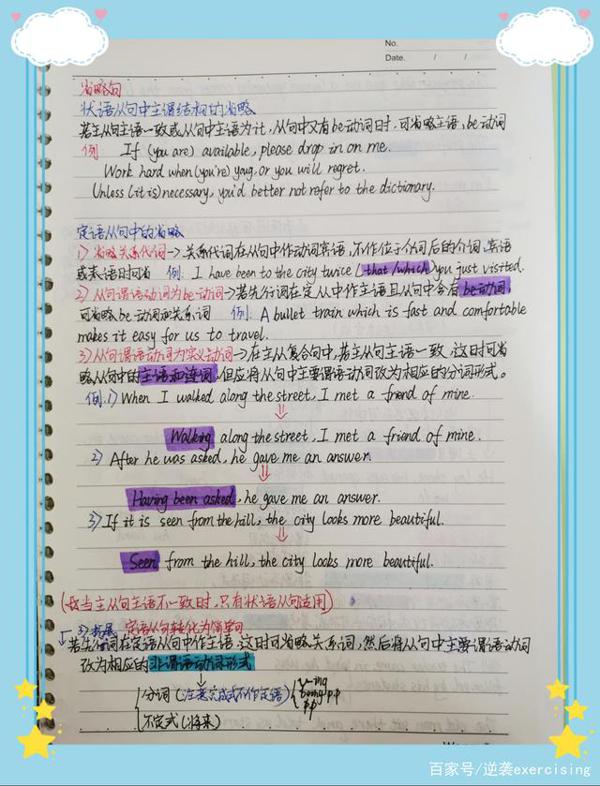 No.
Date. / /
省略句
状语从句中主谓结构的省略
若主从句主语一致或从句中主语为it,从句中又有be动词时,可省略主语,be动词
例 If (you are) available, please drop in on me.
Work hard when (you're) young, or you will regret.
Unless (it is) necessary, you'd better not refer to the dictionary.
定语从句中的省略
1)省略关系代词→关系代词在从句中作动词宾语,不作位于介词后的介词宾语
或表语时可省 例: I have been to the city twice (that/which) you just visited.
2)从句谓语动词为be动词→若先行词在定从中作主语且从句中含有be动词,
可省略be动词和关系词 例: A bullet train which is fast and comfortable
makes it easy for us to travel.
3)从句谓语动词为实义动词→在主从复合句中,若主从句主语一致,这时可省
略从句中的主语和连词,但应将从句中主要谓语动词改为相应的分词形式。
例:1) When I walked along the street, I met a friend of mine.
⇓
Walking along the street, I met a friend of mine.
2) After he was asked, he gave me an answer.
⇓
Having been asked, he gave me an answer.
3) If it is seen from the hill, the city looks more beautiful.
⇓
Seen from the hill, the city looks more beautiful.
(当主从句主语不一致时,只有状语从句适用)
3)拓展 定语从句转化为简单句
若先行词在定语从句中作主语,这时可省略关系词,然后将从句中主要谓语动词
改为相应的非谓语动词形式
↓
分词(注意完成式不作定语) v-ing
being p.p
p.p
不定式(将来)
百家号/逆袭exercising